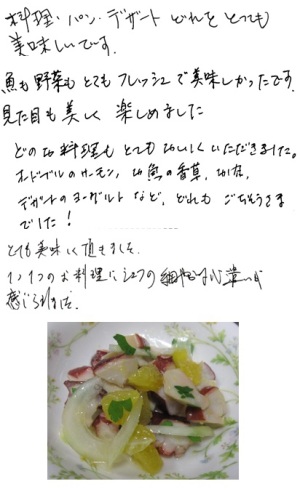 料理・パン・デザート どれをとっても
美味しいです.
魚も野菜もとてもフレッシュで美味しかったです.
見た目も美しく 楽しめました
どのお料理もとてもおいしくいただきました。
オードブルのサーモン, お魚の香草,
デザートのヨーグルト など, どれも ごちそうさま
でした!
とても美味しく頂きました.
1つ1つのお料理にシェフの細やかな心遣いが
感じられました.